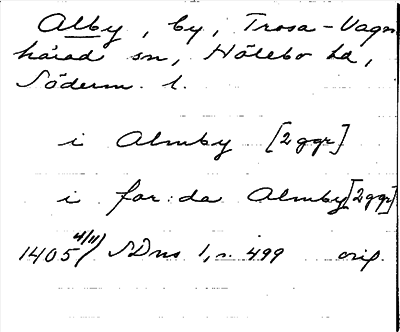 Alby, by, Trosa-Vagn
härad sn, Hölebo hd,
Söderm. l.
i Almby [2 ggr]
i for:da Almby [2 ggr]
1405 4/11) SDns 1, n. 499 orig.